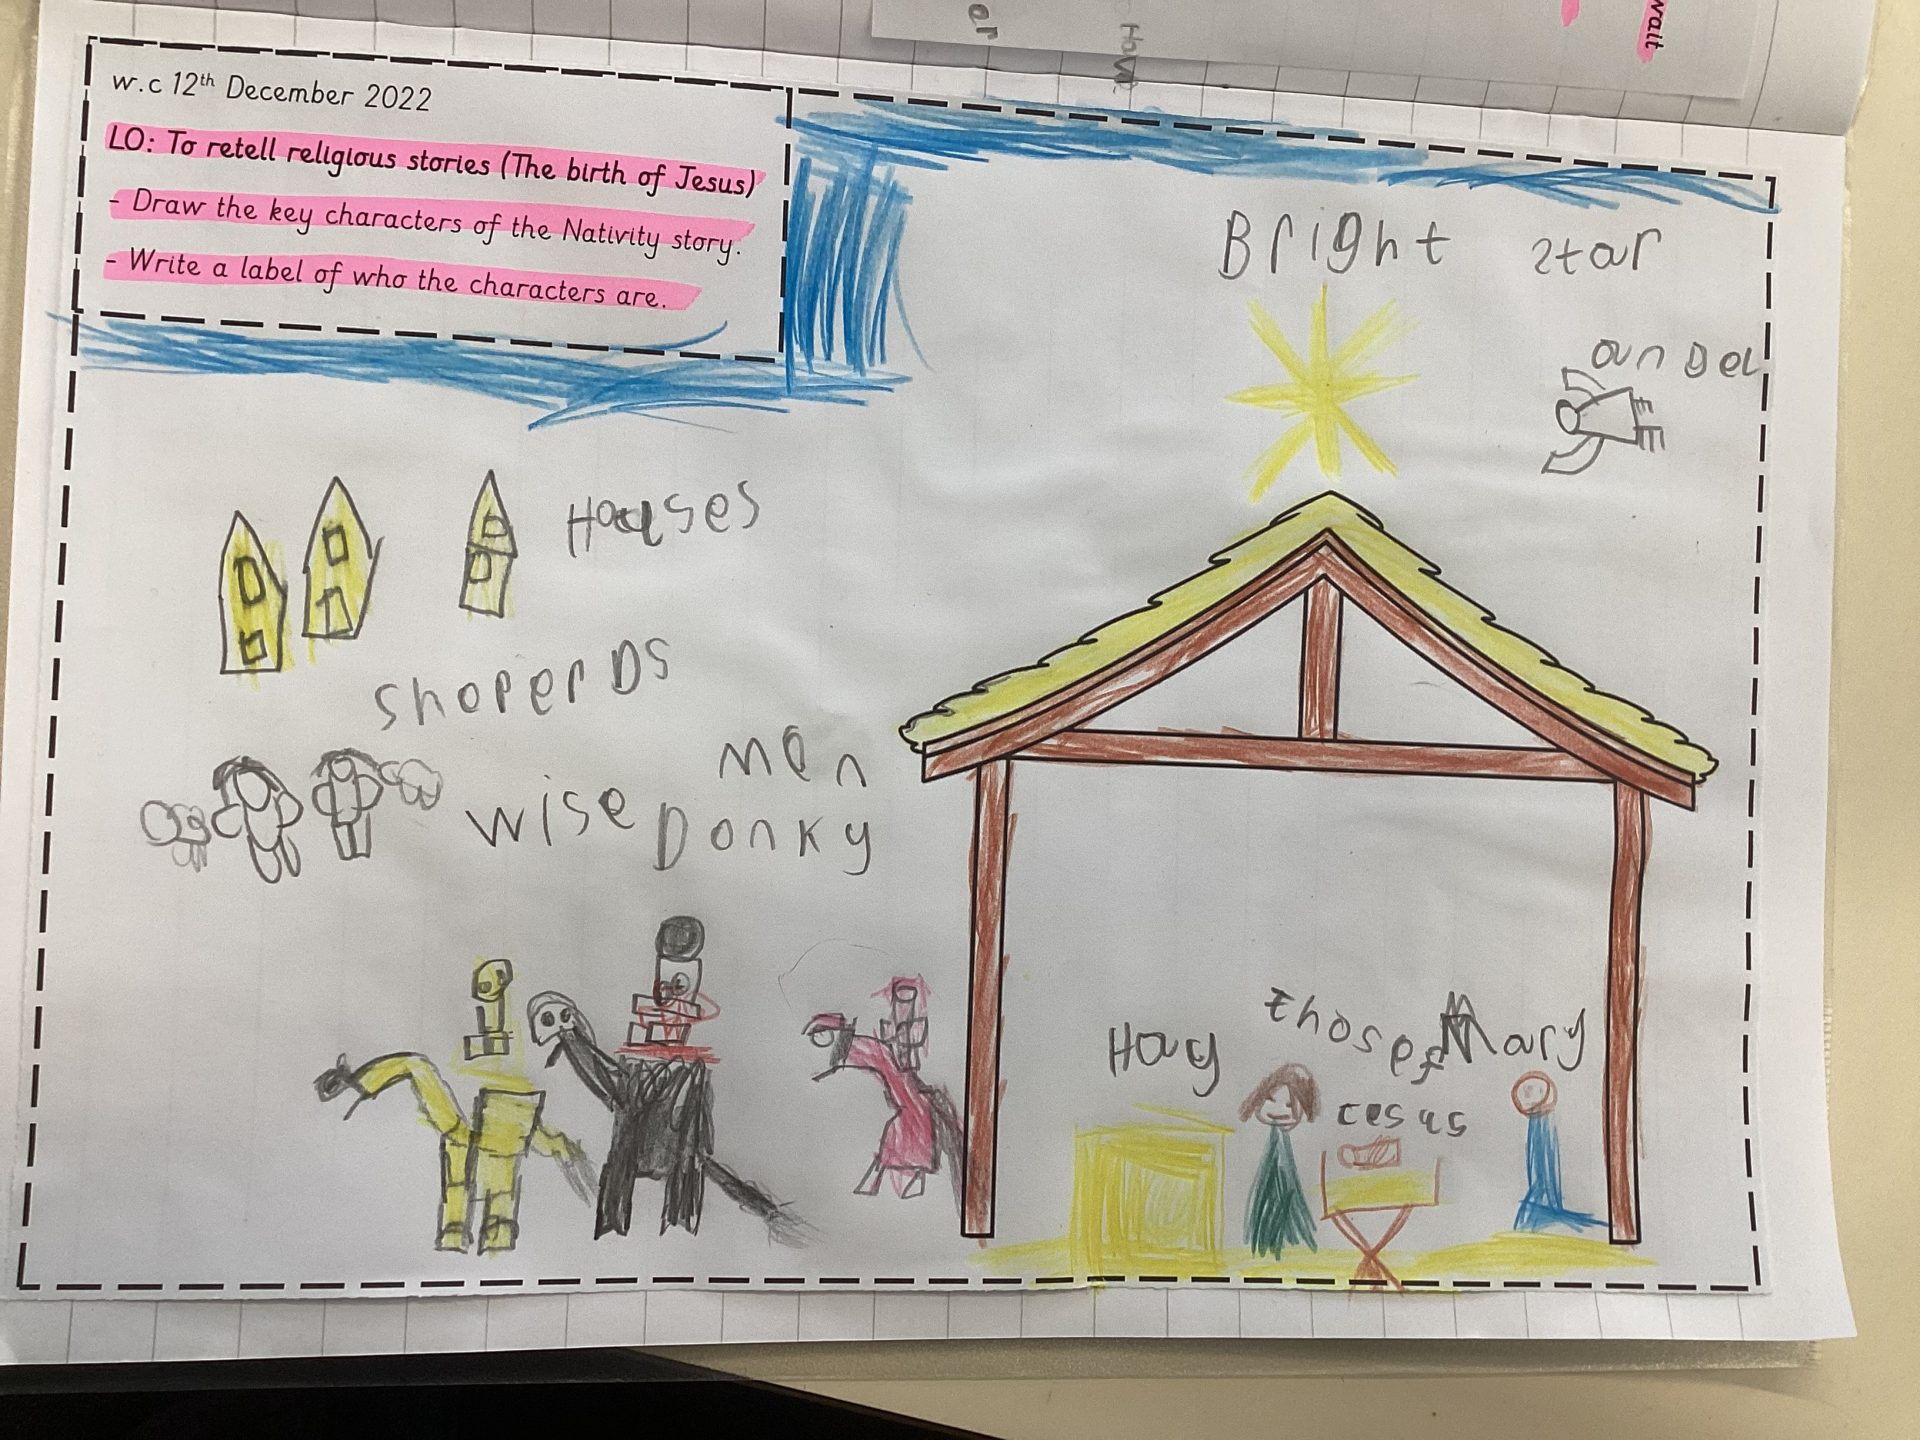 w.c 12th December 2022
LO: To retell religious stories (The birth of Jesus)
- Draw the key characters of the Nativity story.
- Write a label of who the characters are.
wait
How
er
Bright star
angel
Houses
sheperds
wise men
Donky
Hay
thosef
Mary
cesus